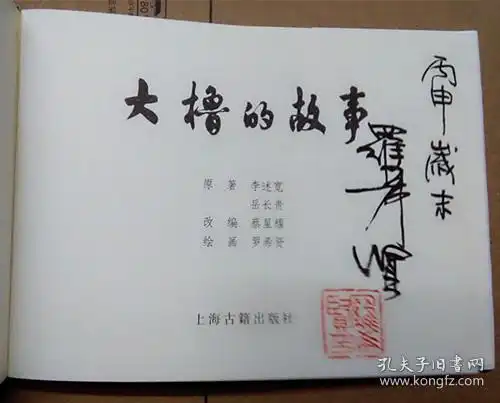 大櫓的故事
原 著 李述宽
岳长贵
改 编 蔡星耀
绘 画 罗希贤
上海古籍出版社
丙申歲末
羅希賢
80
孔夫子旧书网
www.kongfz.com